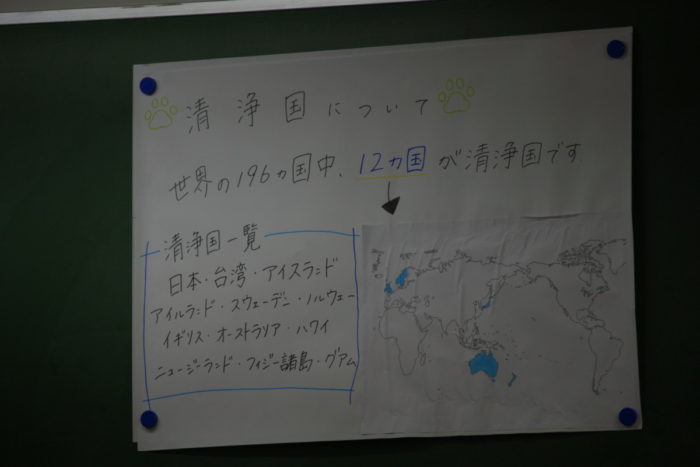 清浄国について
世界の196ヵ国中、12ヵ国が清浄国です
清浄国一覧
日本・台湾・アイスランド
アイルランド・スウェーデン・ノルウェー
イギリス・オーストラリア・ハワイ
ニュージーランド・フィジー諸島・グアム